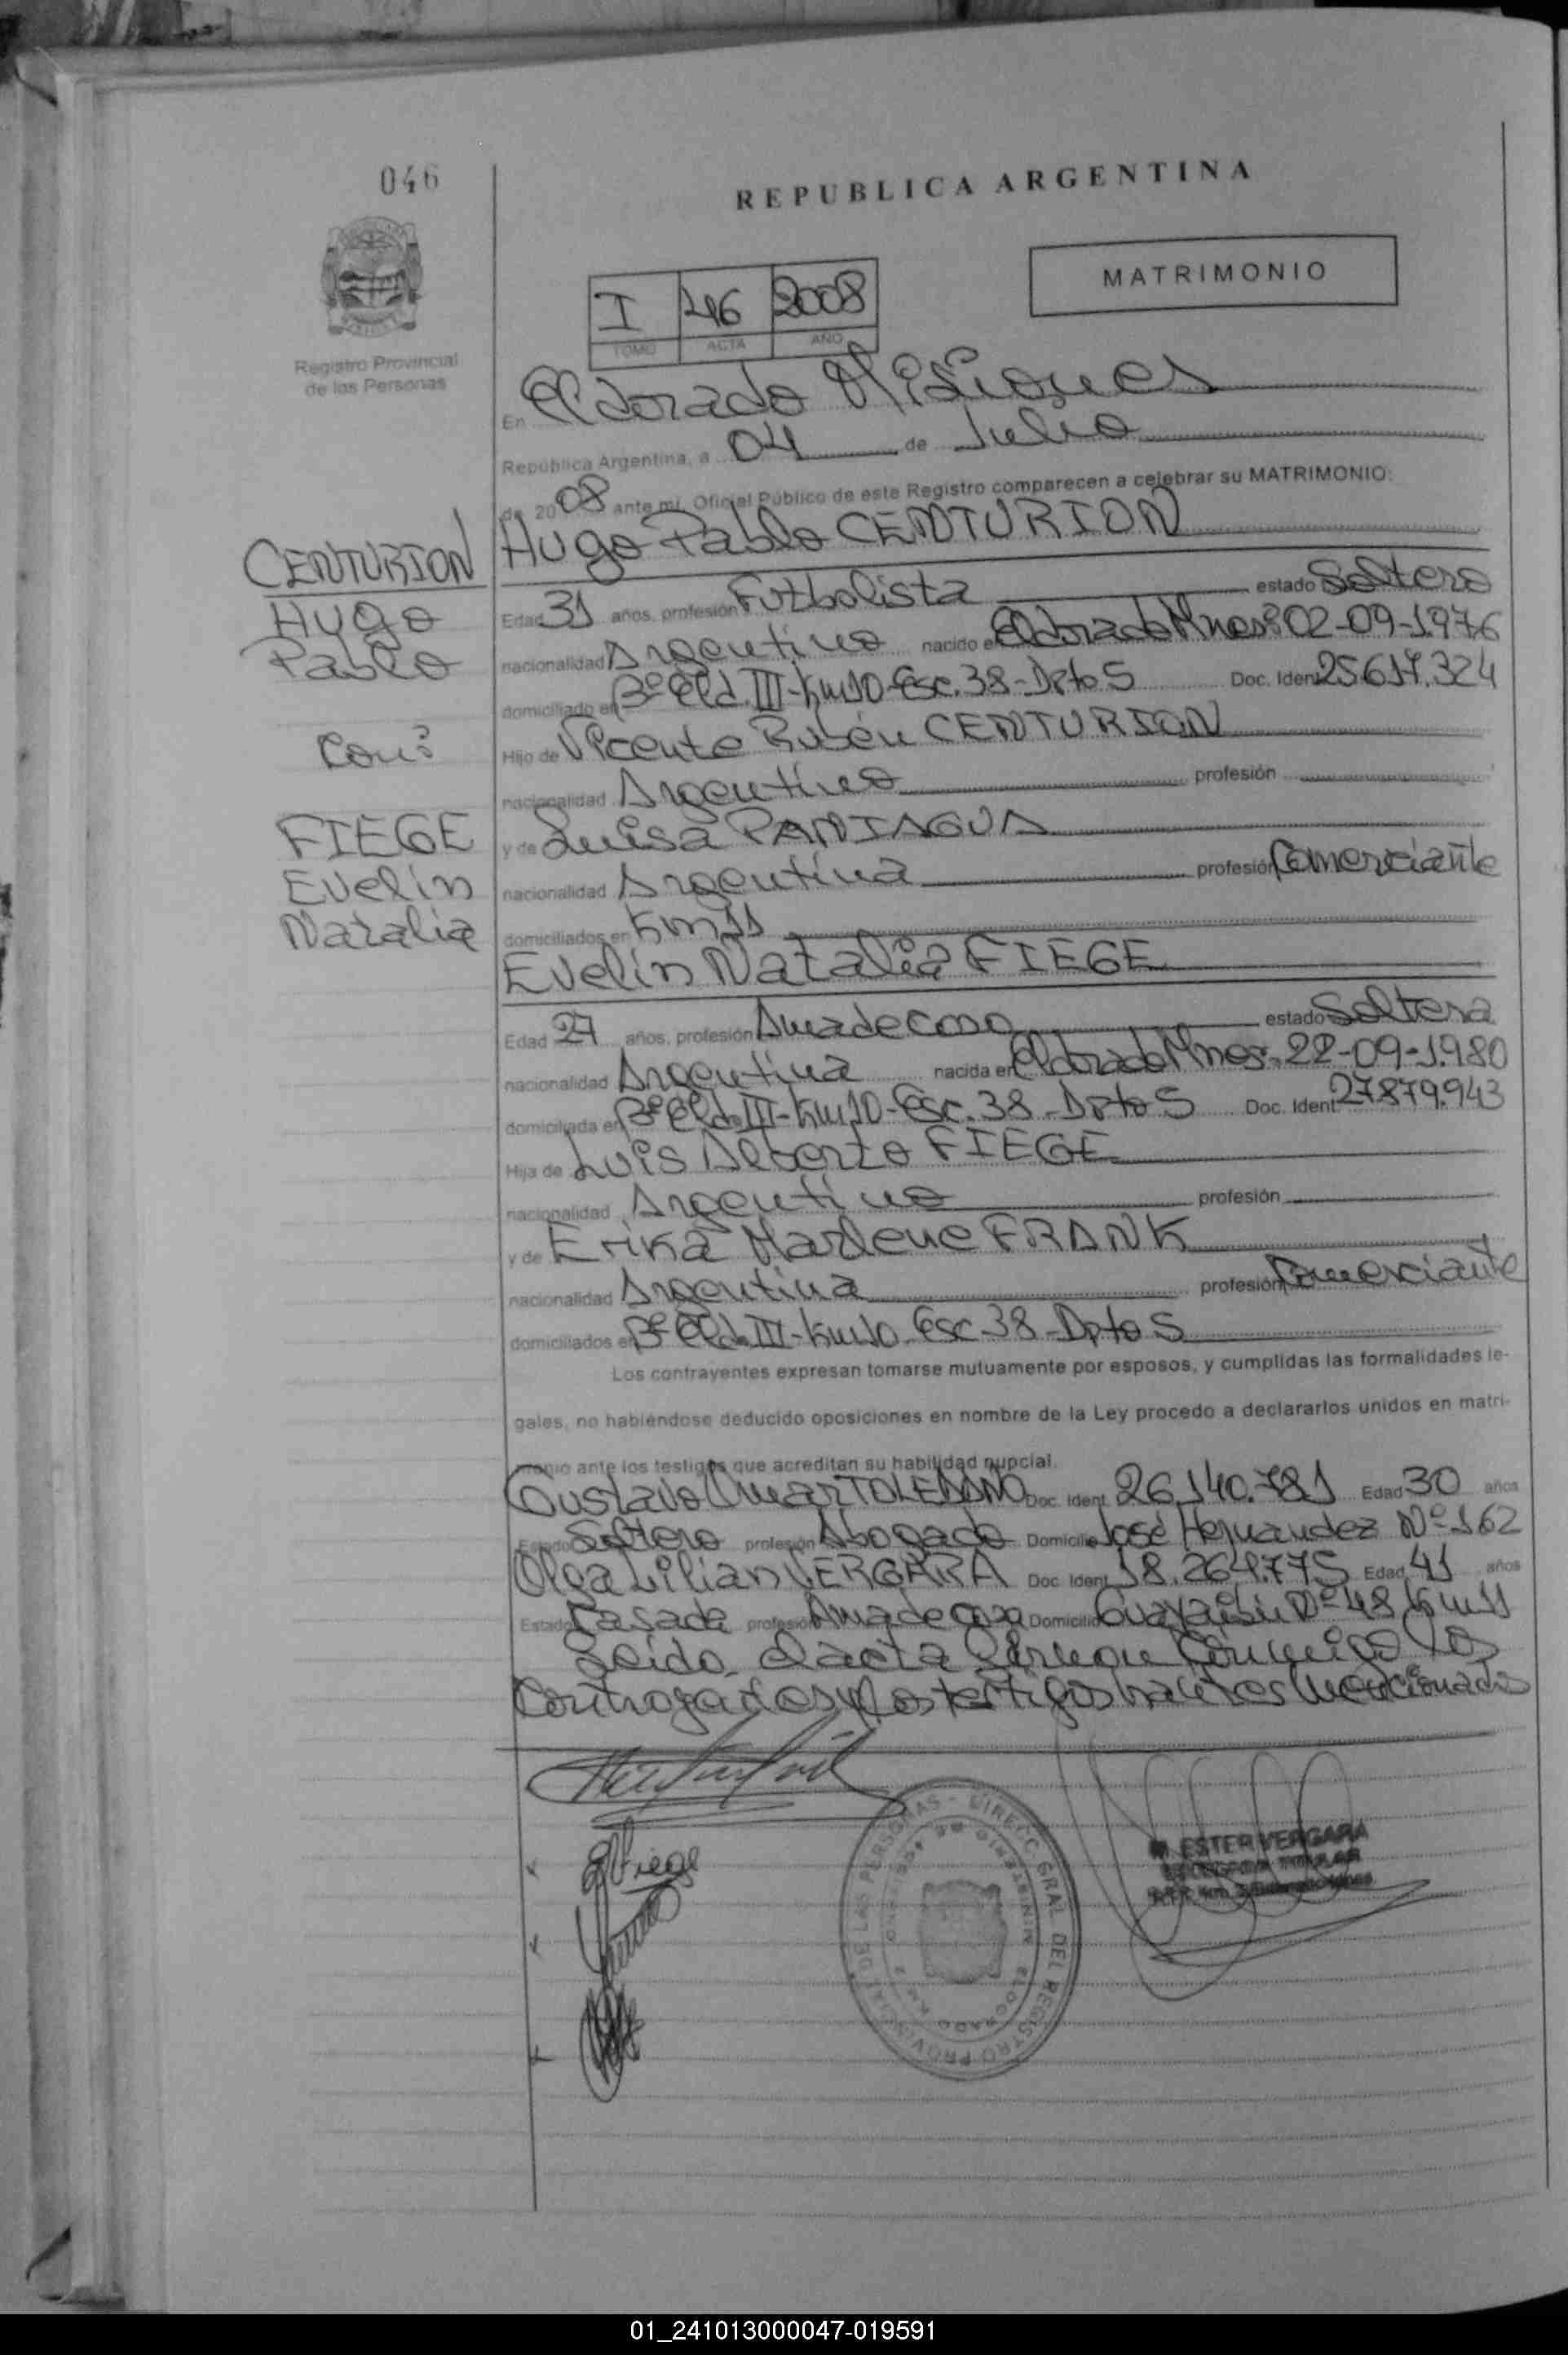 046
REPUBLICA ARGENTINA
MATRIMONIO
I 46 2008
TOMO ACTA AÑO
Registro Provincial
de las Personas
En Eldorado Misiones
República Argentina, a 04 de Julio
de 2008 ante mi, Oficial Público de este Registro comparecen a celebrar su MATRIMONIO:
CENTURION
Hugo
Pablo
Con:
FIEGE
Evelin
Natalia
Hugo Pablo CENTURION
Edad 31 años, profesión Futbolista estado Soltero
nacionalidad Argentino nacido en Eldorado Mnes: 02-09-1.976
domiciliado en Bº Eld. III-Km10-Esc.38-Dpto 5 Doc. Ident 25.617.324
Hijo de Vicente Rubén CENTURION
nacionalidad Argentino profesión
y de Luisa PANIAGUA
nacionalidad Argentina profesión Comerciante
domiciliados en Km 11
Evelin Natalia FIEGE
Edad 27 años, profesión Ama de Casa estado Soltera
nacionalidad Argentina nacida en Eldorado Mnes. 22-09-1.980
domiciliada en Bº Eld. III-Km10-Esc.38-Dpto 5 Doc. Ident 27.879.943
Hija de Luis Alberto FIEGE
nacionalidad Argentino profesión
y de Erika Marlene FRANK
nacionalidad Argentina profesión Comerciante
domiciliados en Bº Eld. III-Km10-Esc 38-Dpto 5
Los contrayentes expresan tomarse mutuamente por esposos, y cumplidas las formalidades le-
gales, no habiéndose deducido oposiciones en nombre de la Ley procedo a declararlos unidos en matri-
monio ante los testigos que acreditan su habilidad nupcial.
Gustavo Omar TOLEDANO Doc. Ident. 26.140.781 Edad 30 años
Estado Soltero profesión Abogado Domicilio José Hernandez Nº 162
Olga Lilian VERGARA Doc. Ident. 18.264.775 Edad 41 años
Estado Casada profesión Ama de Casa Domicilio Guayaibi Nº 48 Km 11
Leida el acta firman Conmigo los
Contrayentes y los testigos mencionados
EFiege
ESTER VERGARA
DIRECC GRAL DEL REGISTRO PROVINCIAL DE LAS PERSONAS
ELDORADO KM 2
01_241013000047-019591